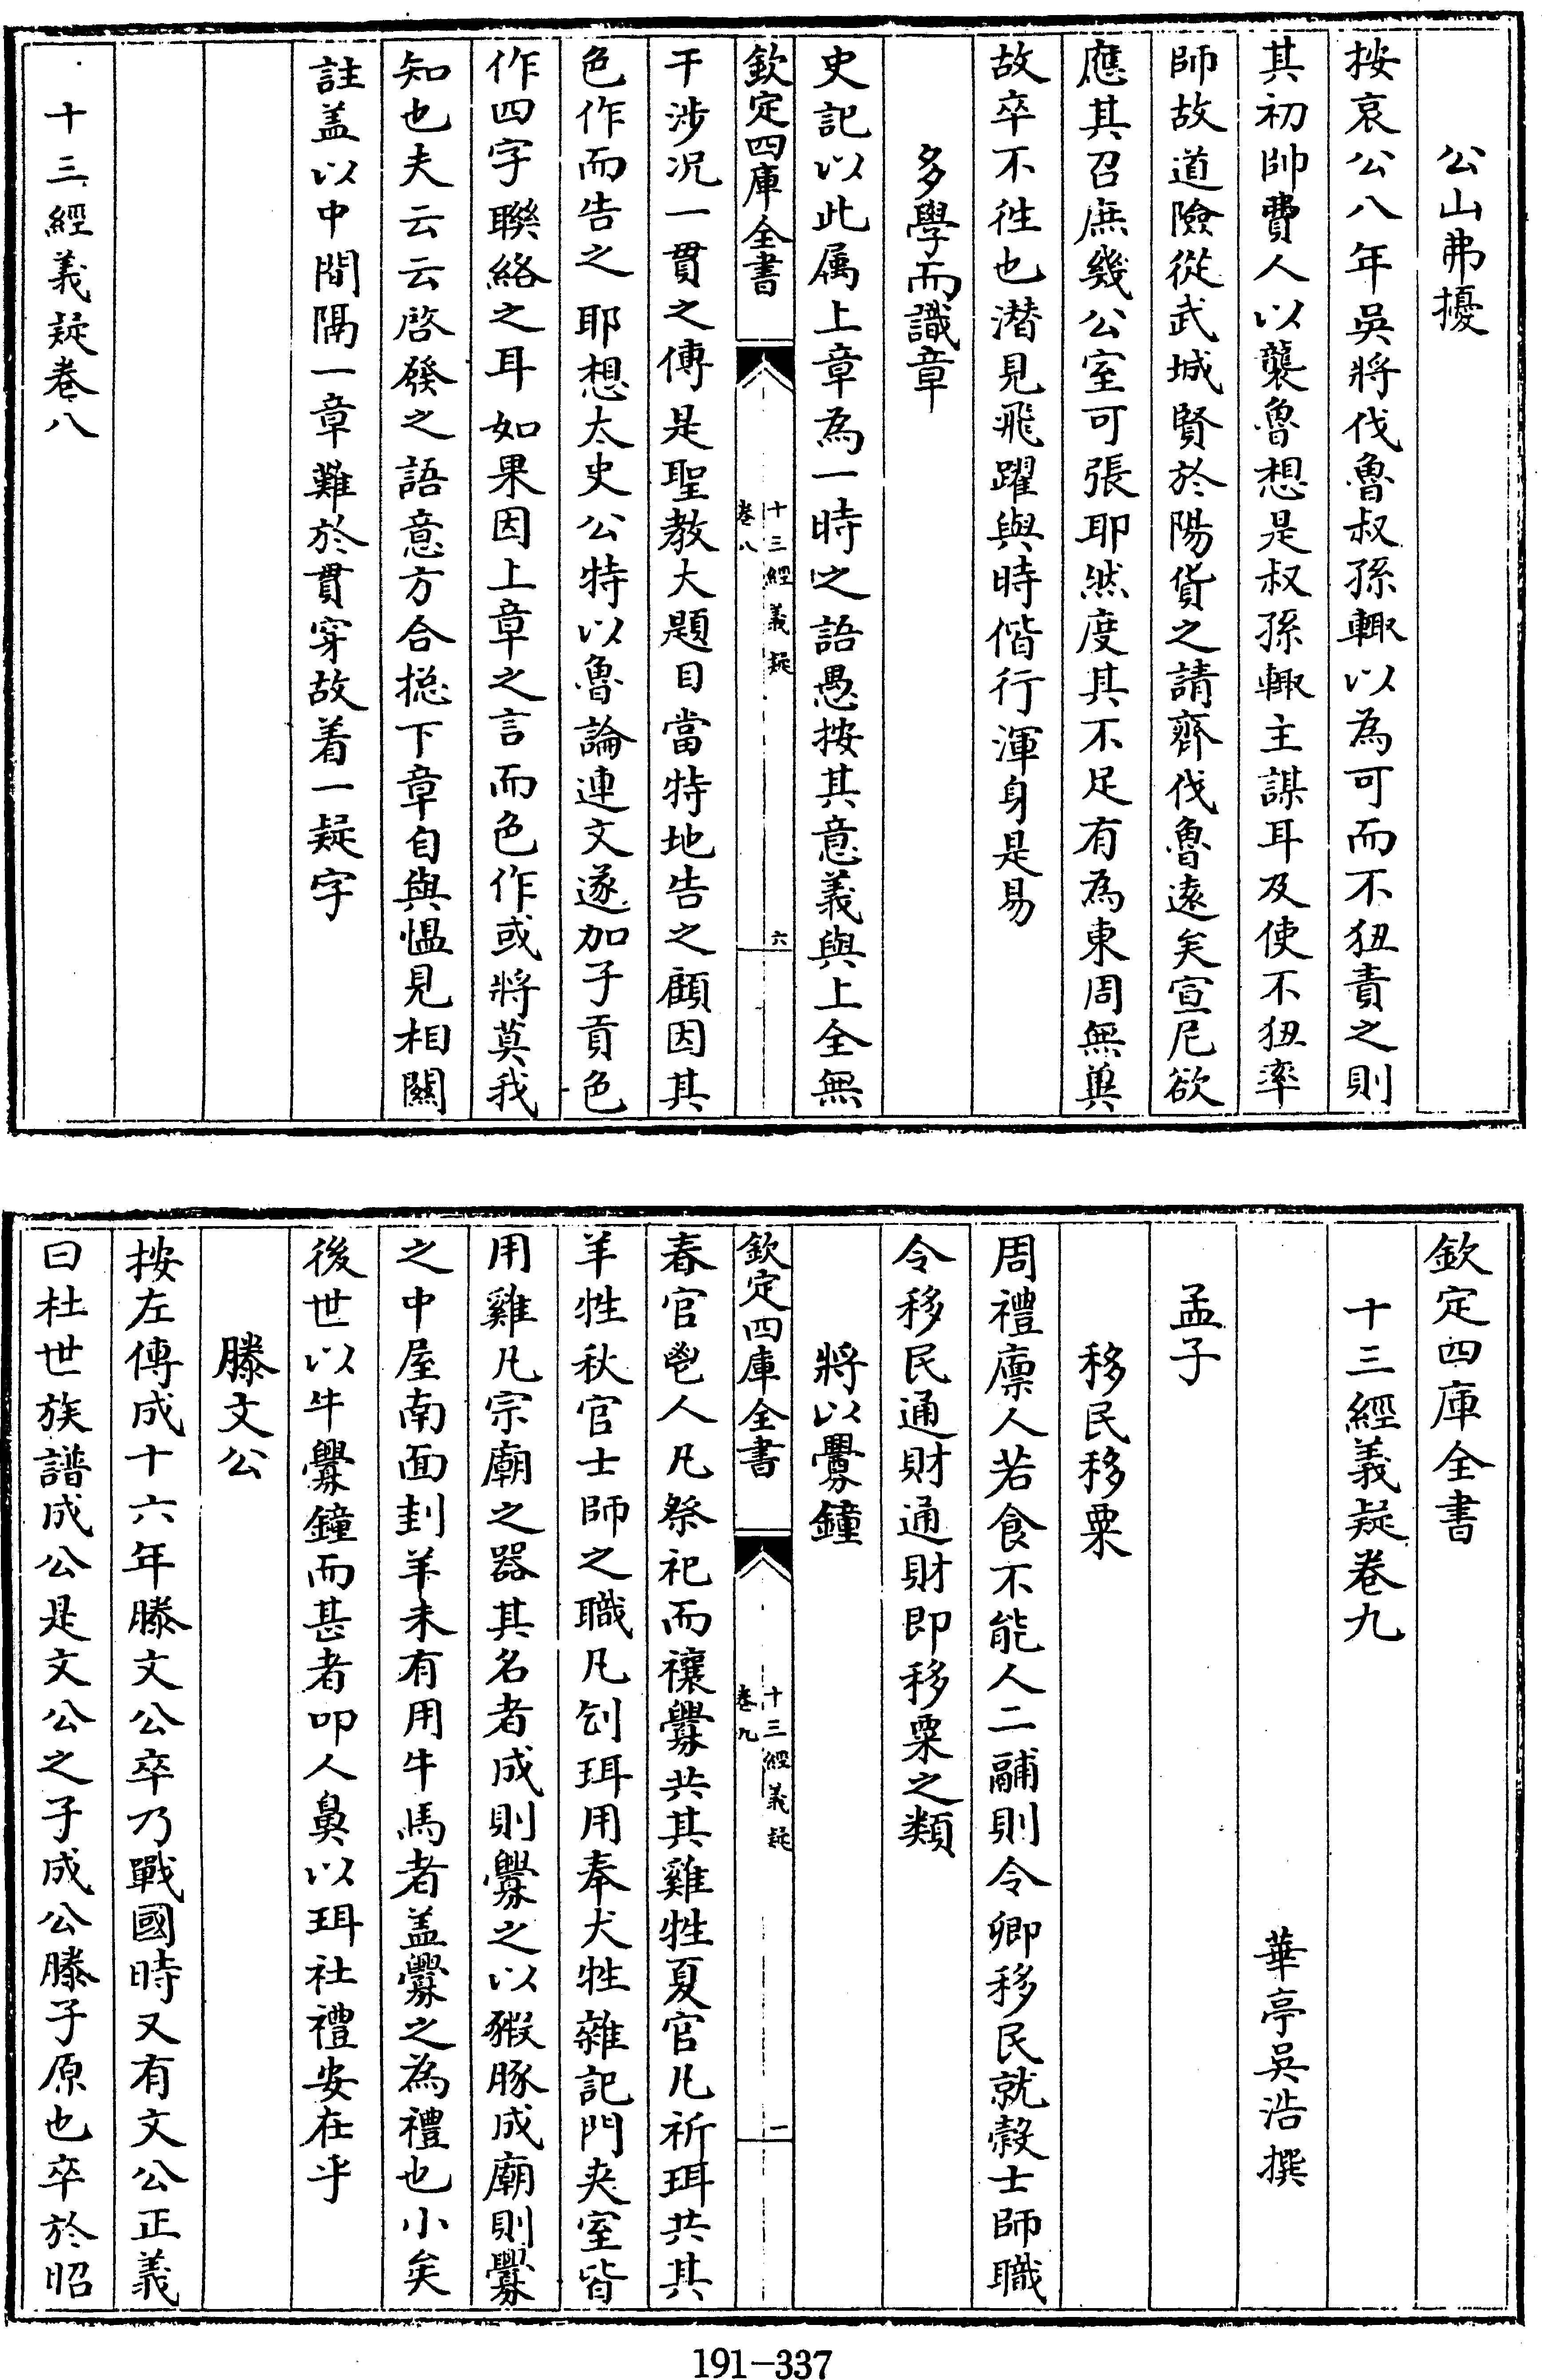 公山弗擾
按哀公八年吳將伐魯叔孫輒以為可而不狃責之則
其初帥費人以襲魯想是叔孫輒主謀耳及使不狃率
師故道險從武城賢於陽貨之請齊伐魯遠矣宣尼欲
應其召庶幾公室可張耶然度其不足有為東周無與
故卒不徃也潛見飛躍與時偕行渾身是易
多學而識章
史記以此属上章為一時之語愚按其意義與上全無
欽定四庫全書
十三經義疑
卷八
六
干涉况一貫之傳是聖教大題目當特地告之顧因其
色作而告之耶想太史公特以魯論連文遂加子貢色
作四字聯絡之耳如果因上章之言而色作或將莫我
知也夫云云啓發之語意方合揔下章自與慍見相關
註盖以中間隔一章難於貫穿故着一疑字
十三經義疑卷八
欽定四庫全書
十三經義疑卷九
華亭吳浩撰
孟子
移民移粟
周禮廪人若食不能人二鬴則令卿移民就榖士師職
令移民通財通財即移粟之類
將以釁鐘
欽定四庫全書
十三經義疑
卷九
一
春官鬯人凡祭祀而禳釁共其雞牲夏官凡祈珥共其
羊牲秋官士師之職凡刉珥用奉犬牲雜記門夾室皆
用雞凡宗廟之器其名者成則釁之以豭豚成廟則釁
之中屋南面刲羊未有用牛馬者盖釁之為禮也小矣
後世以牛釁鐘而甚者叩人鼻以珥社禮安在乎
滕文公
按左傳成十六年滕文公卒乃戰國時又有文公正義
曰杜世族譜成公是文公之子成公滕子原也卒於昭
191-337